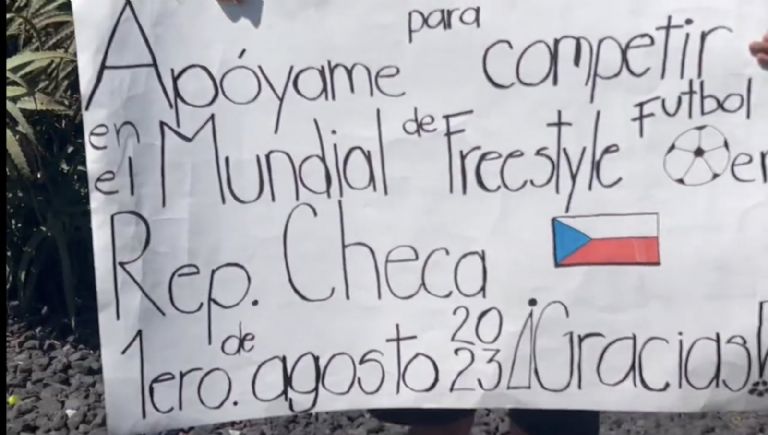 Apóyame para competir
en el Mundial de Freestyle Futbol en
Rep. Checa
1ero. de agosto 2023 ¡Gracias!